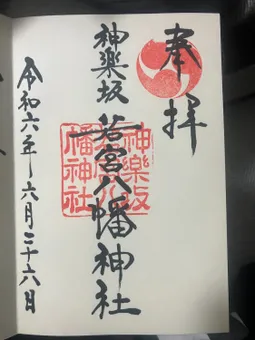 奉拝
神楽坂 若宮八幡神社
令和六年 六月二十六日
神楽坂
若宮八
幡神社